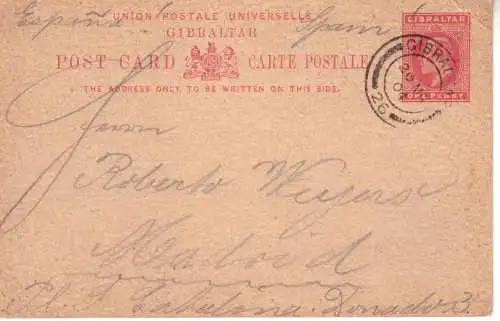 España! Spain!
UNION POSTALE UNIVERSELLE
GIBRALTAR
GIBRALTAR
POST CARD CARTE POSTALE
THE ADDRESS ONLY TO BE WRITTEN ON THIS SIDE.
ONE PENNY
GIBRAL
04
26
Herrn
Roberto Weyers
Madrid
Donados 3.